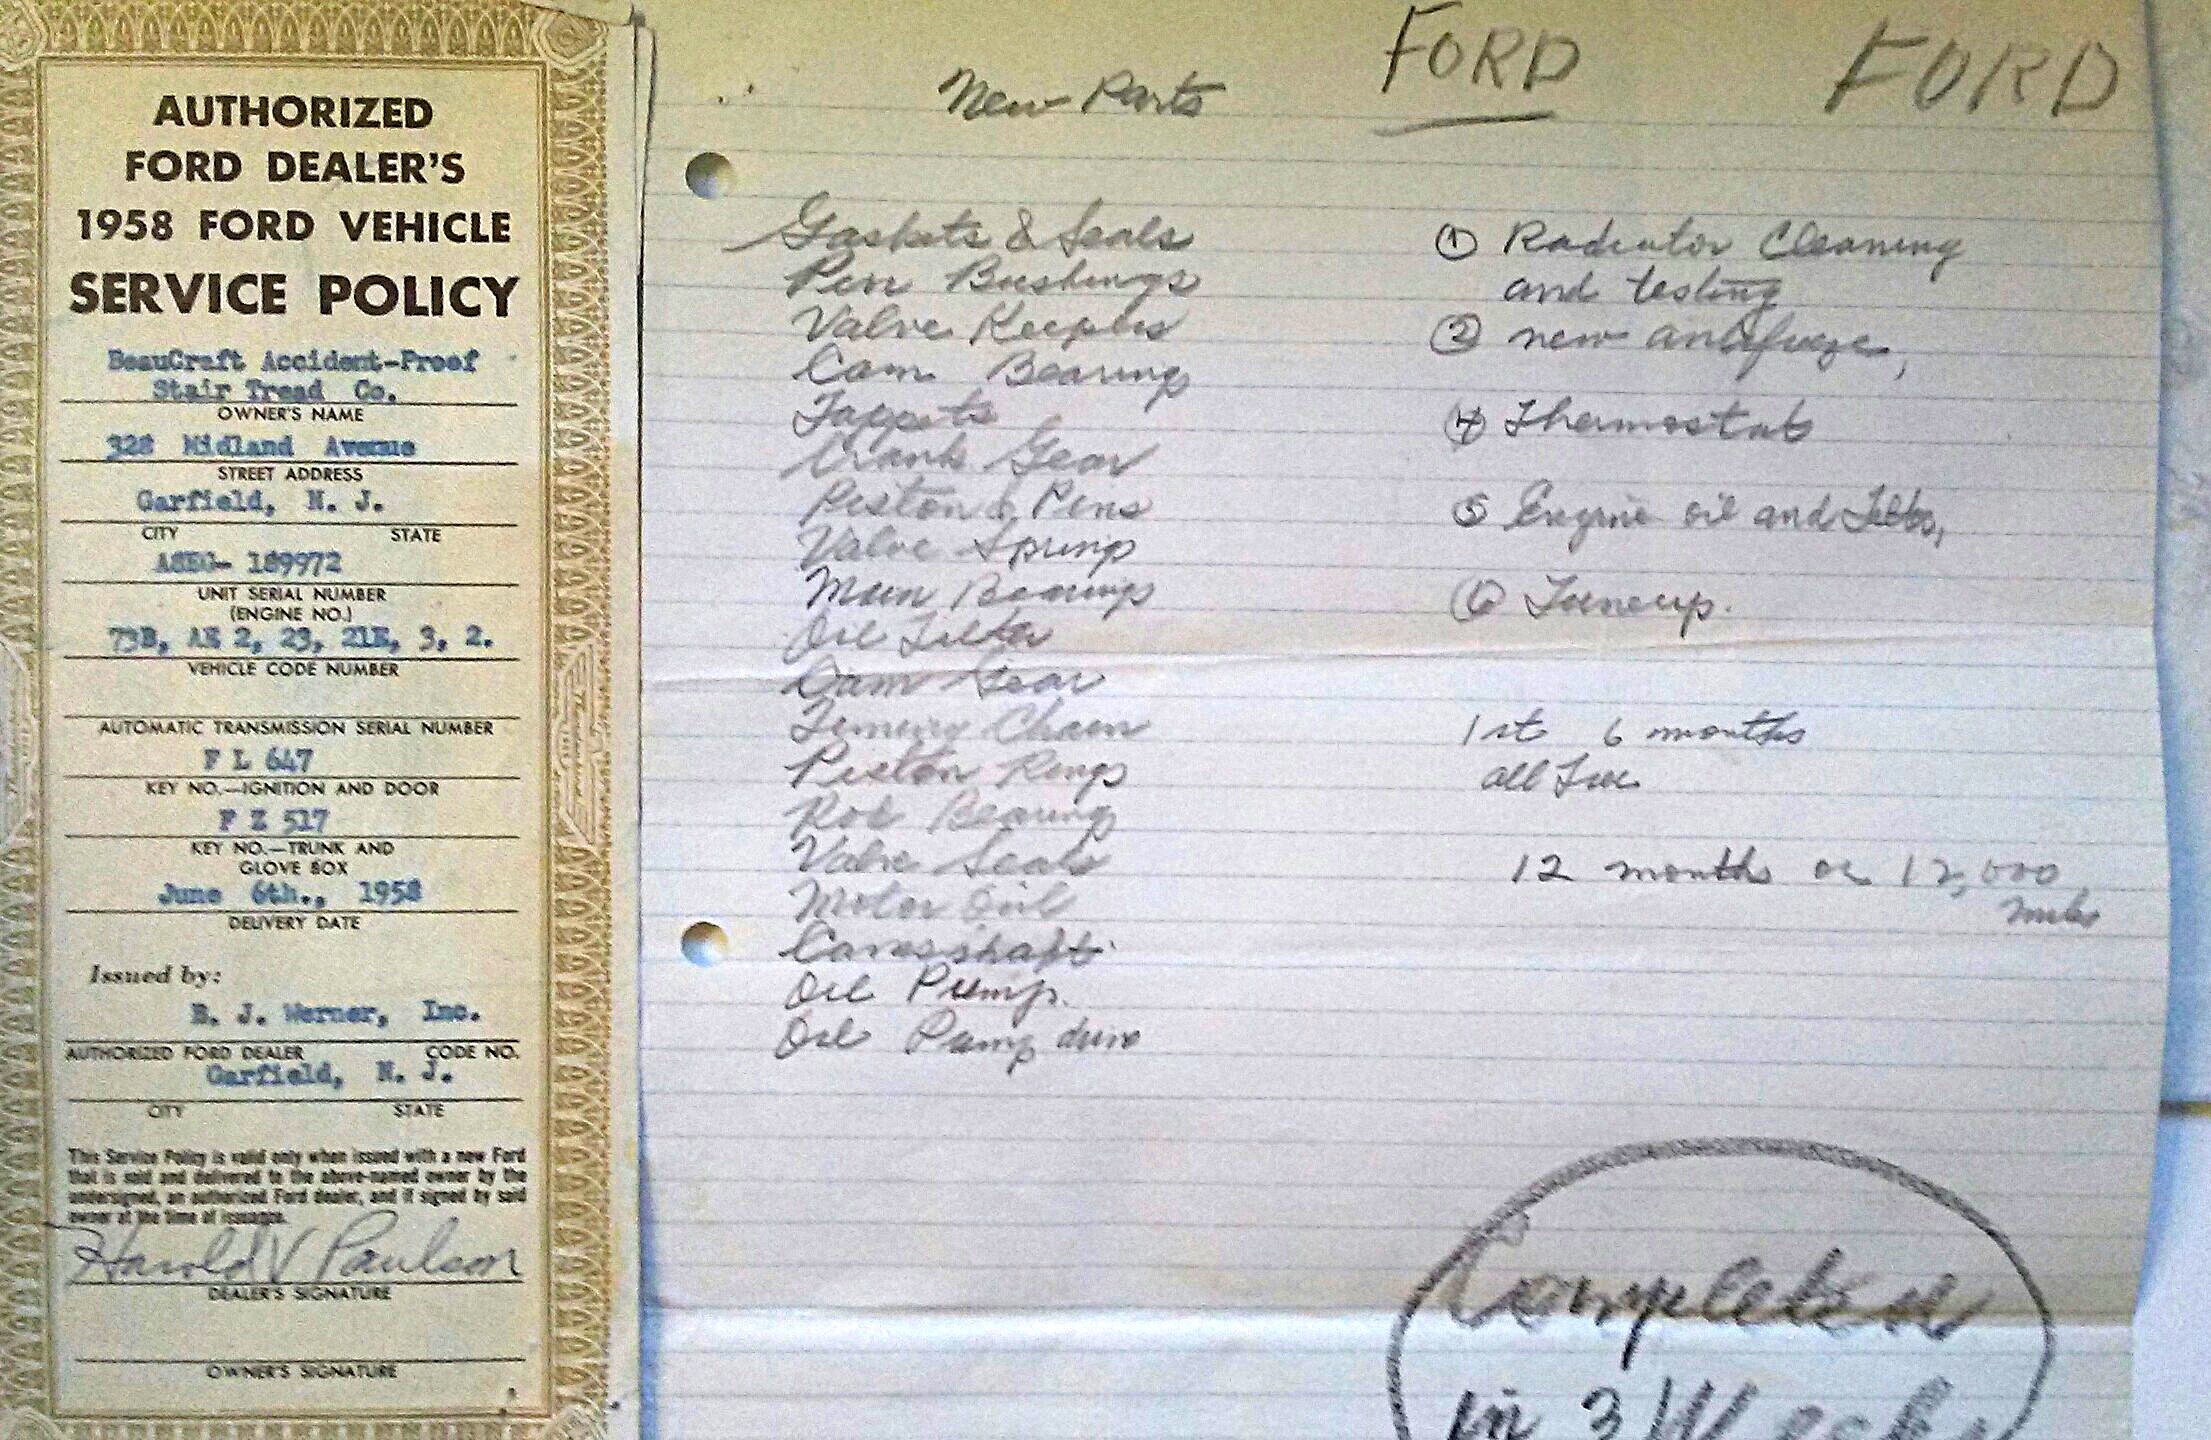 AUTHORIZED
FORD DEALER'S
1958 FORD VEHICLE
SERVICE POLICY
BeauCraft Accident-Proof
Stair Tread Co.
OWNER'S NAME
328 Midland Avenue
STREET ADDRESS
Garfield, N. J.
CITY STATE
189972
UNIT SERIAL NUMBER
(ENGINE NO.)
73B, AE 2, 23, 21E, 3, 2.
VEHICLE CODE NUMBER
AUTOMATIC TRANSMISSION SERIAL NUMBER
F L 647
KEY NO.—IGNITION AND DOOR
F Z 517
KEY NO.—TRUNK AND
GLOVE BOX
June 6th., 1958
DELIVERY DATE
Issued by:
J. Werner, Inc.
AUTHORIZED FORD DEALER CODE NO.
Garfield, N. J.
CITY STATE
This Service Policy is valid only when issued with a new Ford
that is sold and delivered to the above-named owner by the
undersigned, an authorized Ford dealer, and if signed by said
owner at the time of issuance.
Harold V Paulson
DEALER'S SIGNATURE
OWNER'S SIGNATURE
New Parts
FORD FORD
Gaskets & Seals
Pin Bushings
Valve Keepers
Cam Bearing
Tappets
Crank Gear
Piston & Pins
Valve Spring
Main Bearings
Oil Filter
Cam Gear
Timing Chain
Piston Rings
Rod Bearing
Valve Seals
Motor Oil
Camshaft
Oil Pump.
Oil Pump drive
① Radiator Cleaning
and testing
② new antifreeze,
④ Thermostat
⑤ Engine oil and Filter,
⑥ Tuneup.
1st 6 months
all free
12 months or 12,000
miles
Completed
in 3 Weeks